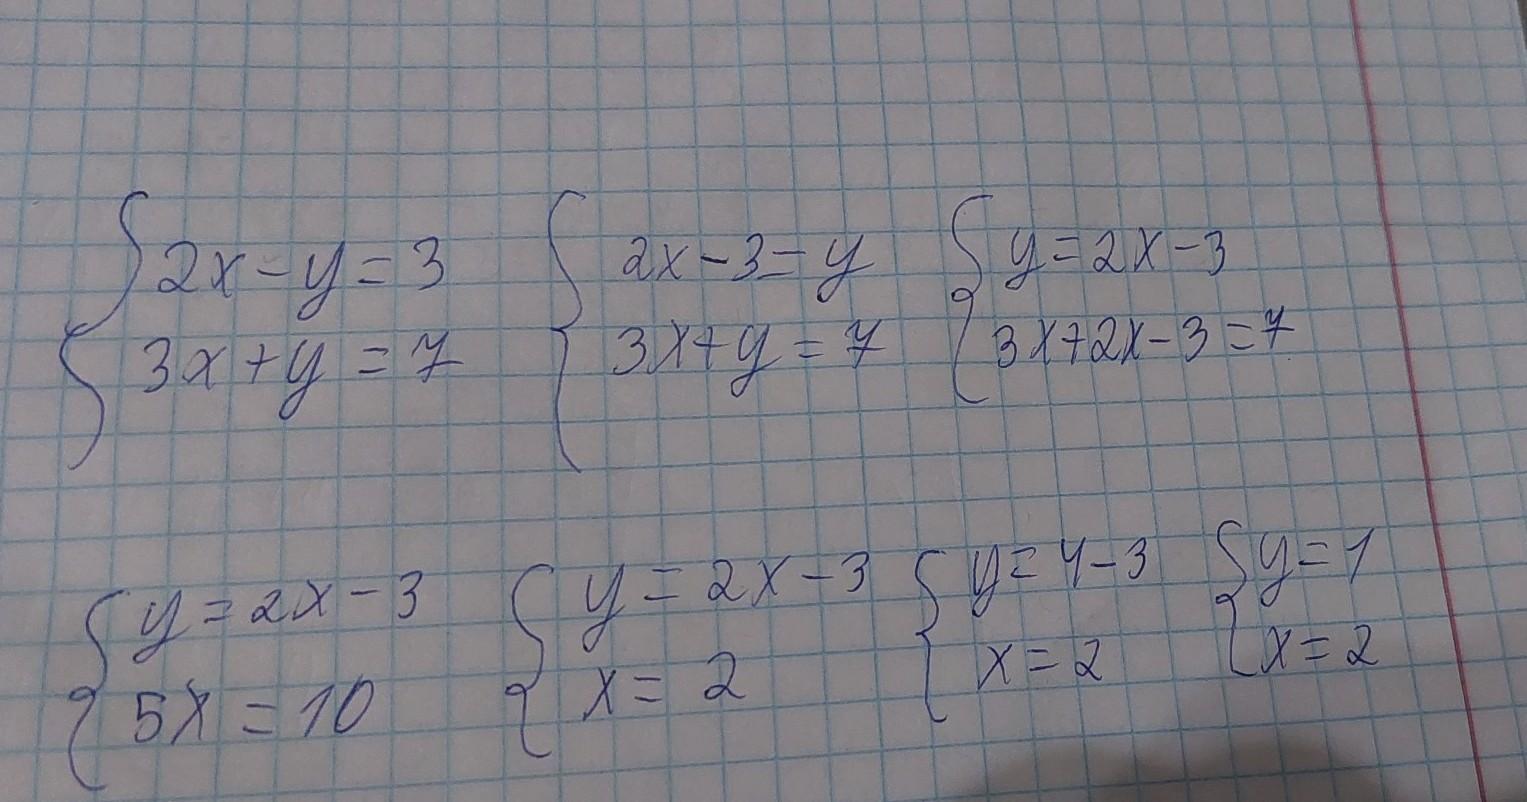 2x-y=3
3x+y=7
2x-3=y
3x+y=7
y=2x-3
3x+2x-3=7
y=2x-3
5x=10
y=2x-3
x=2
y=4-3
x=2
y=1
x=2